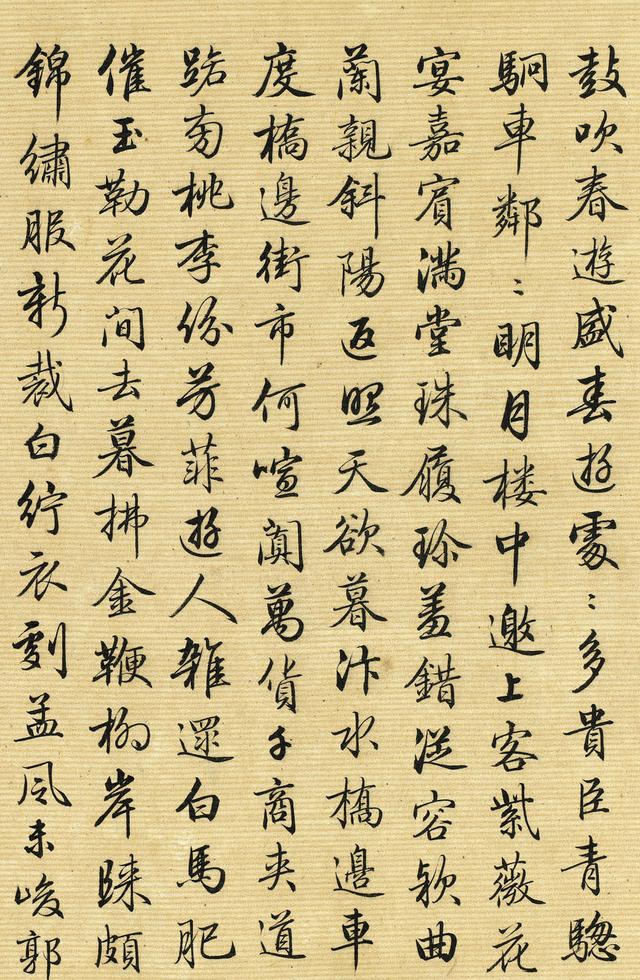 鼓吹春遊盛春遊處〻多貴臣青驄
駉車鄰〻明月楼中邀上客紫薇花
宴嘉賓滿堂珠履珍羞錯從容款曲
蘭親斜陽返照天欲暮汴水橋邊車
度橋邊街市何喧闐萬貨千商夾道
路旁桃李份芳菲遊人雜遝白馬肥
催玉勒花间去暮拂金鞭柳岸歸頗
錦繡服新裁白紵衣劇孟风未峻郭